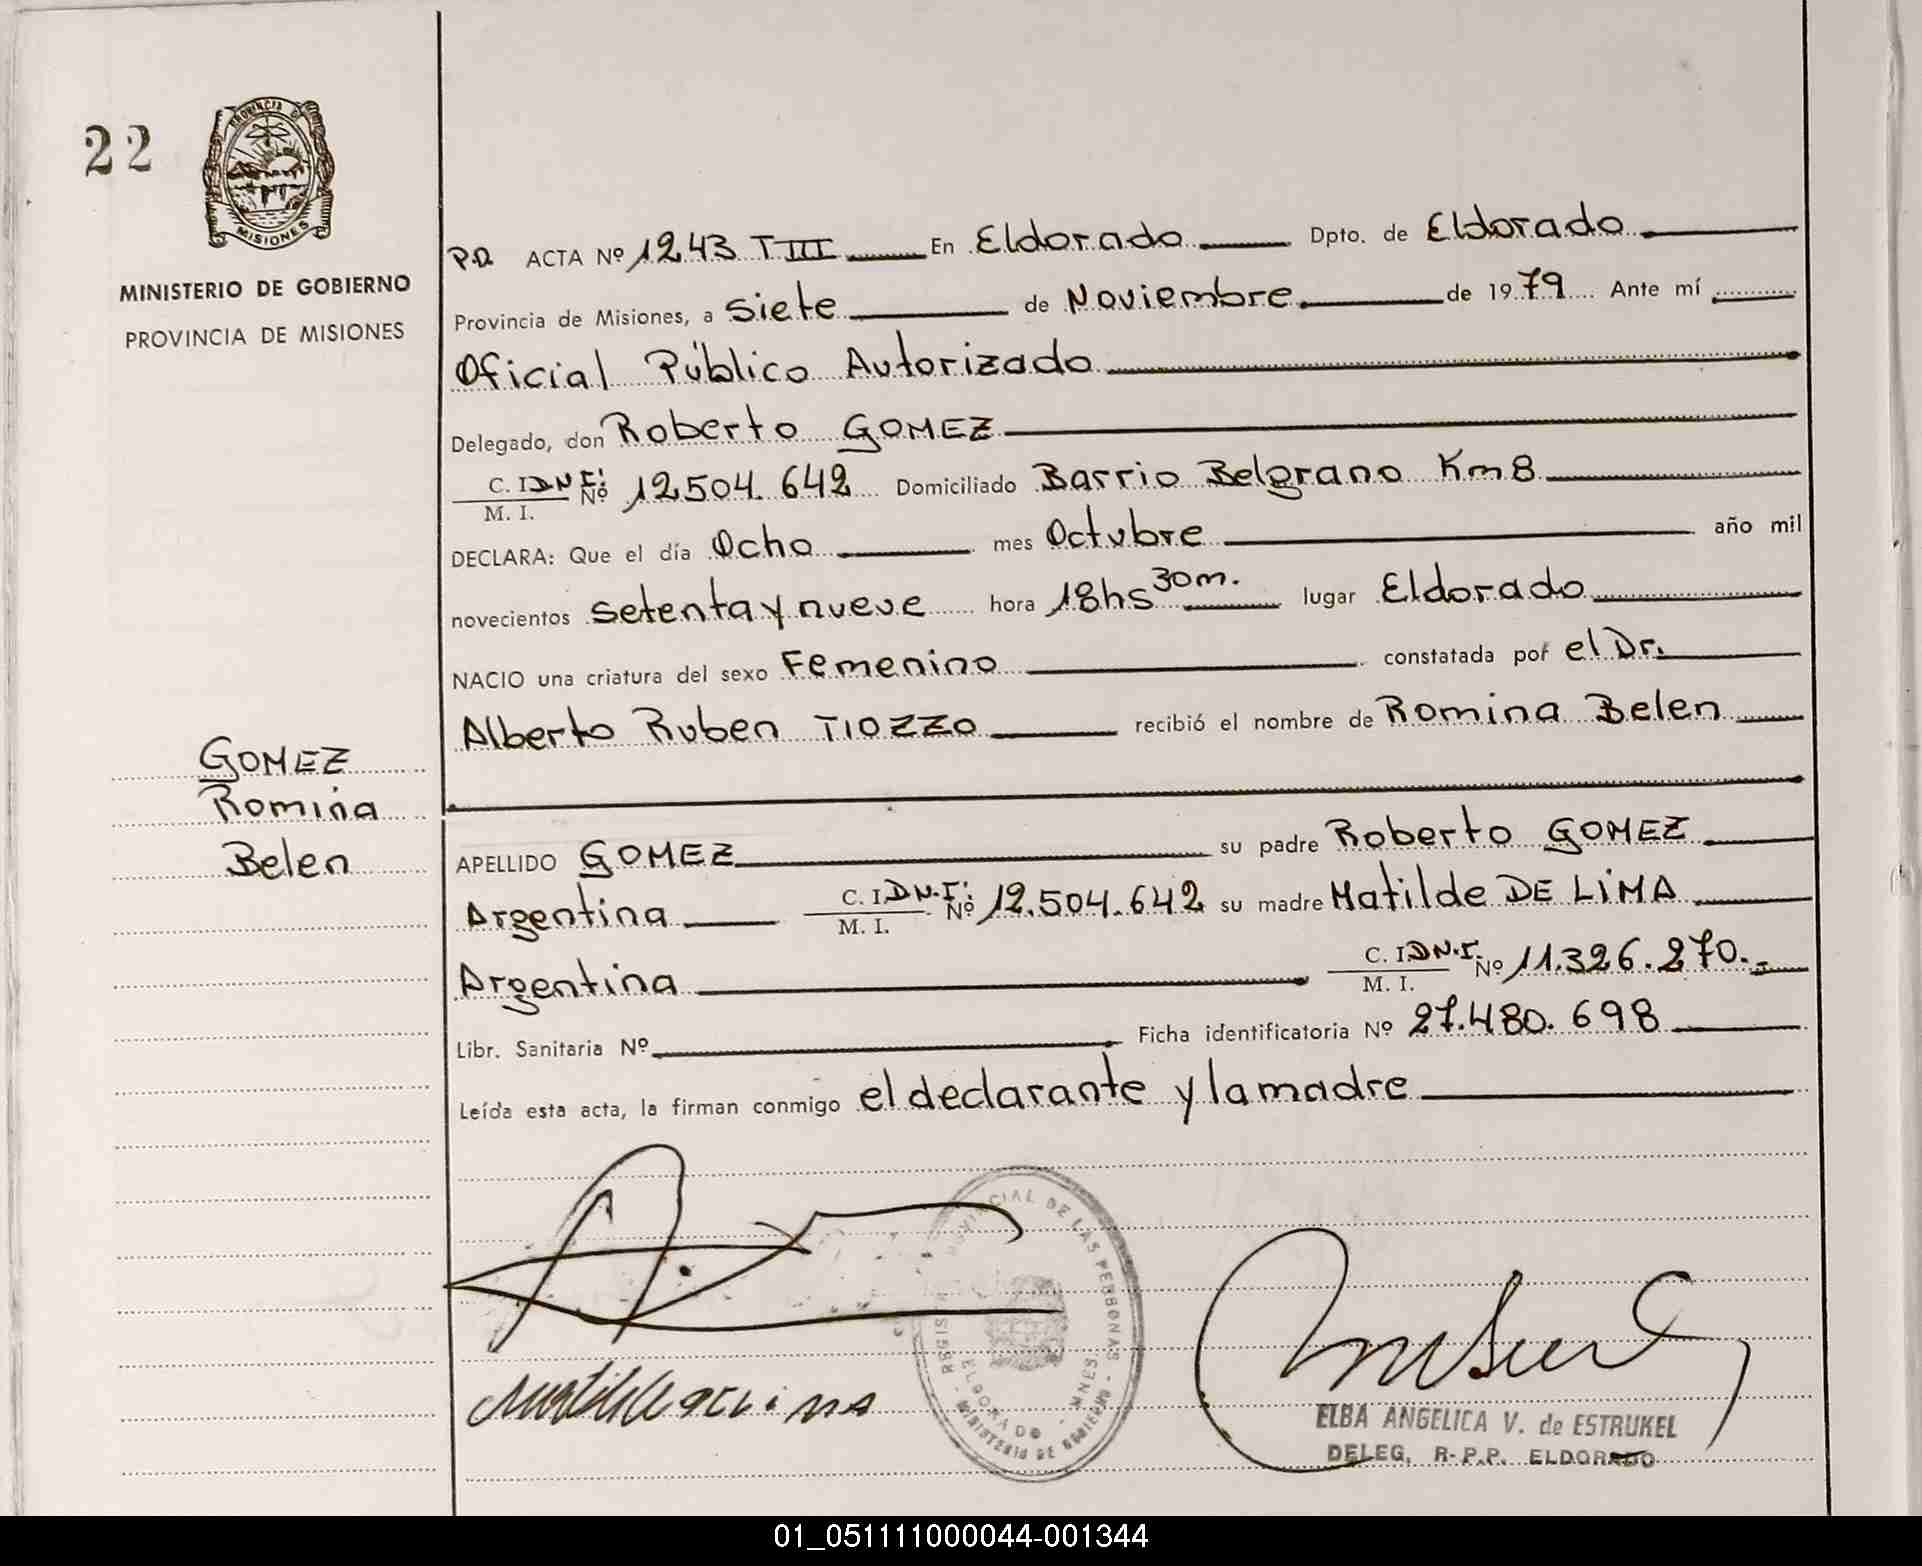 22
PROVINCIA DE
MISIONES
MINISTERIO DE GOBIERNO
PROVINCIA DE MISIONES
GOMEZ
Romina
Belen
P.D. ACTA Nº 1243 T III En Eldorado Dpto. de Eldorado
Provincia de Misiones, a siete de Noviembre de 1979 Ante mí
Oficial Público Autorizado
Delegado, don Roberto GOMEZ
C. I. D.N.I. Nº 12.504.642 Domiciliado Barrio Belgrano Km 8
M. I.
DECLARA: Que el día Ocho mes Octubre año mil
novecientos setenta y nueve hora 18hs 30m. lugar Eldorado
NACIO una criatura del sexo Femenino constatada por el Dr.
Alberto Ruben TIOZZO recibió el nombre de Romina Belen
APELLIDO GOMEZ su padre Roberto GOMEZ
Argentina C. I. D.N.I. Nº 12.504.642 su madre Matilde DE LIMA
M. I.
Argentina C. I. D.N.I. Nº 11.326.270.-
M. I.
Libr. Sanitaria Nº Ficha identificatoria Nº 27.480.698
Leída esta acta, la firman conmigo el declarante y la madre
DE LAS PERSONAS
ELDORADO - MNES
MINISTERIO DE GOBIERNO
ELBA ANGELICA V. de ESTRUKEL
DELEG. R-P.P. ELDORADO
01_051111000044-001344